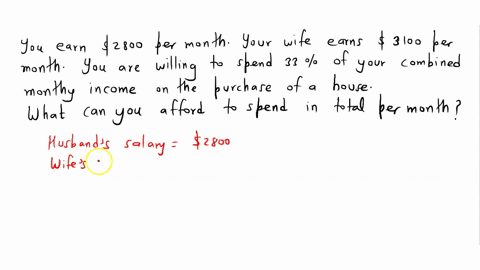 You earn $2800 per month. Your wife earns $ 3100 per
month. You are willing to spend 33% of your combined
monthy income on the purchase of a house.
What can you afford to spend in total per month?
Husband's salary = $2800
Wife's